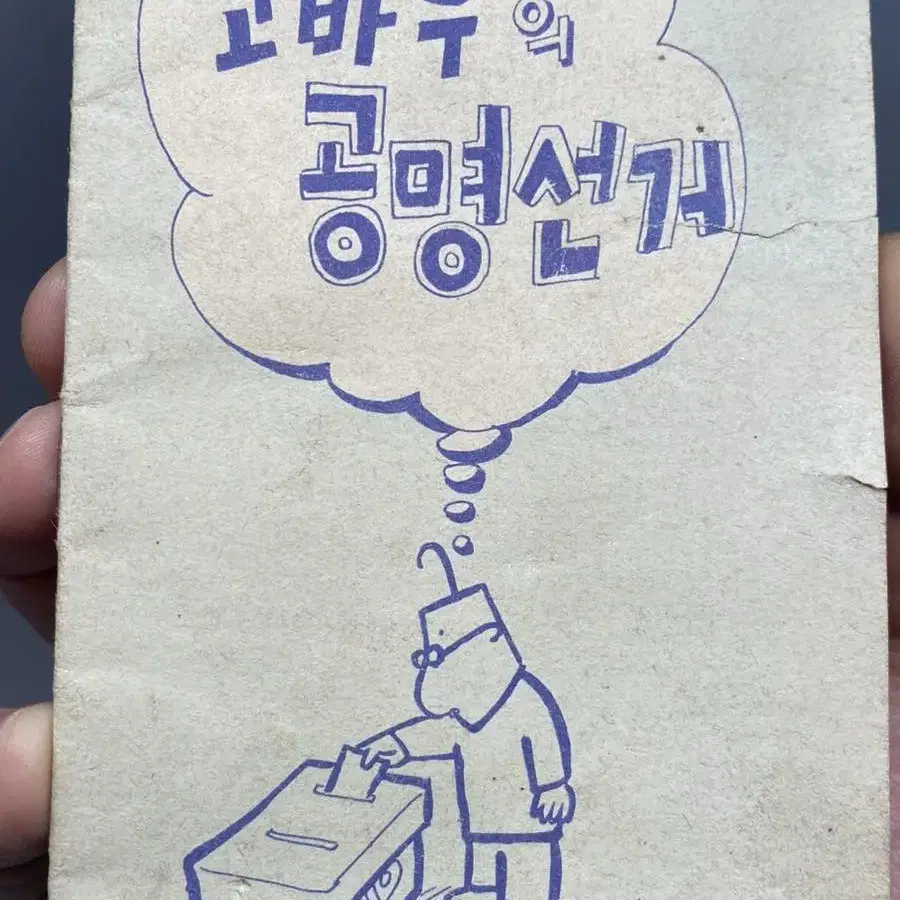 고바우의
공명선거